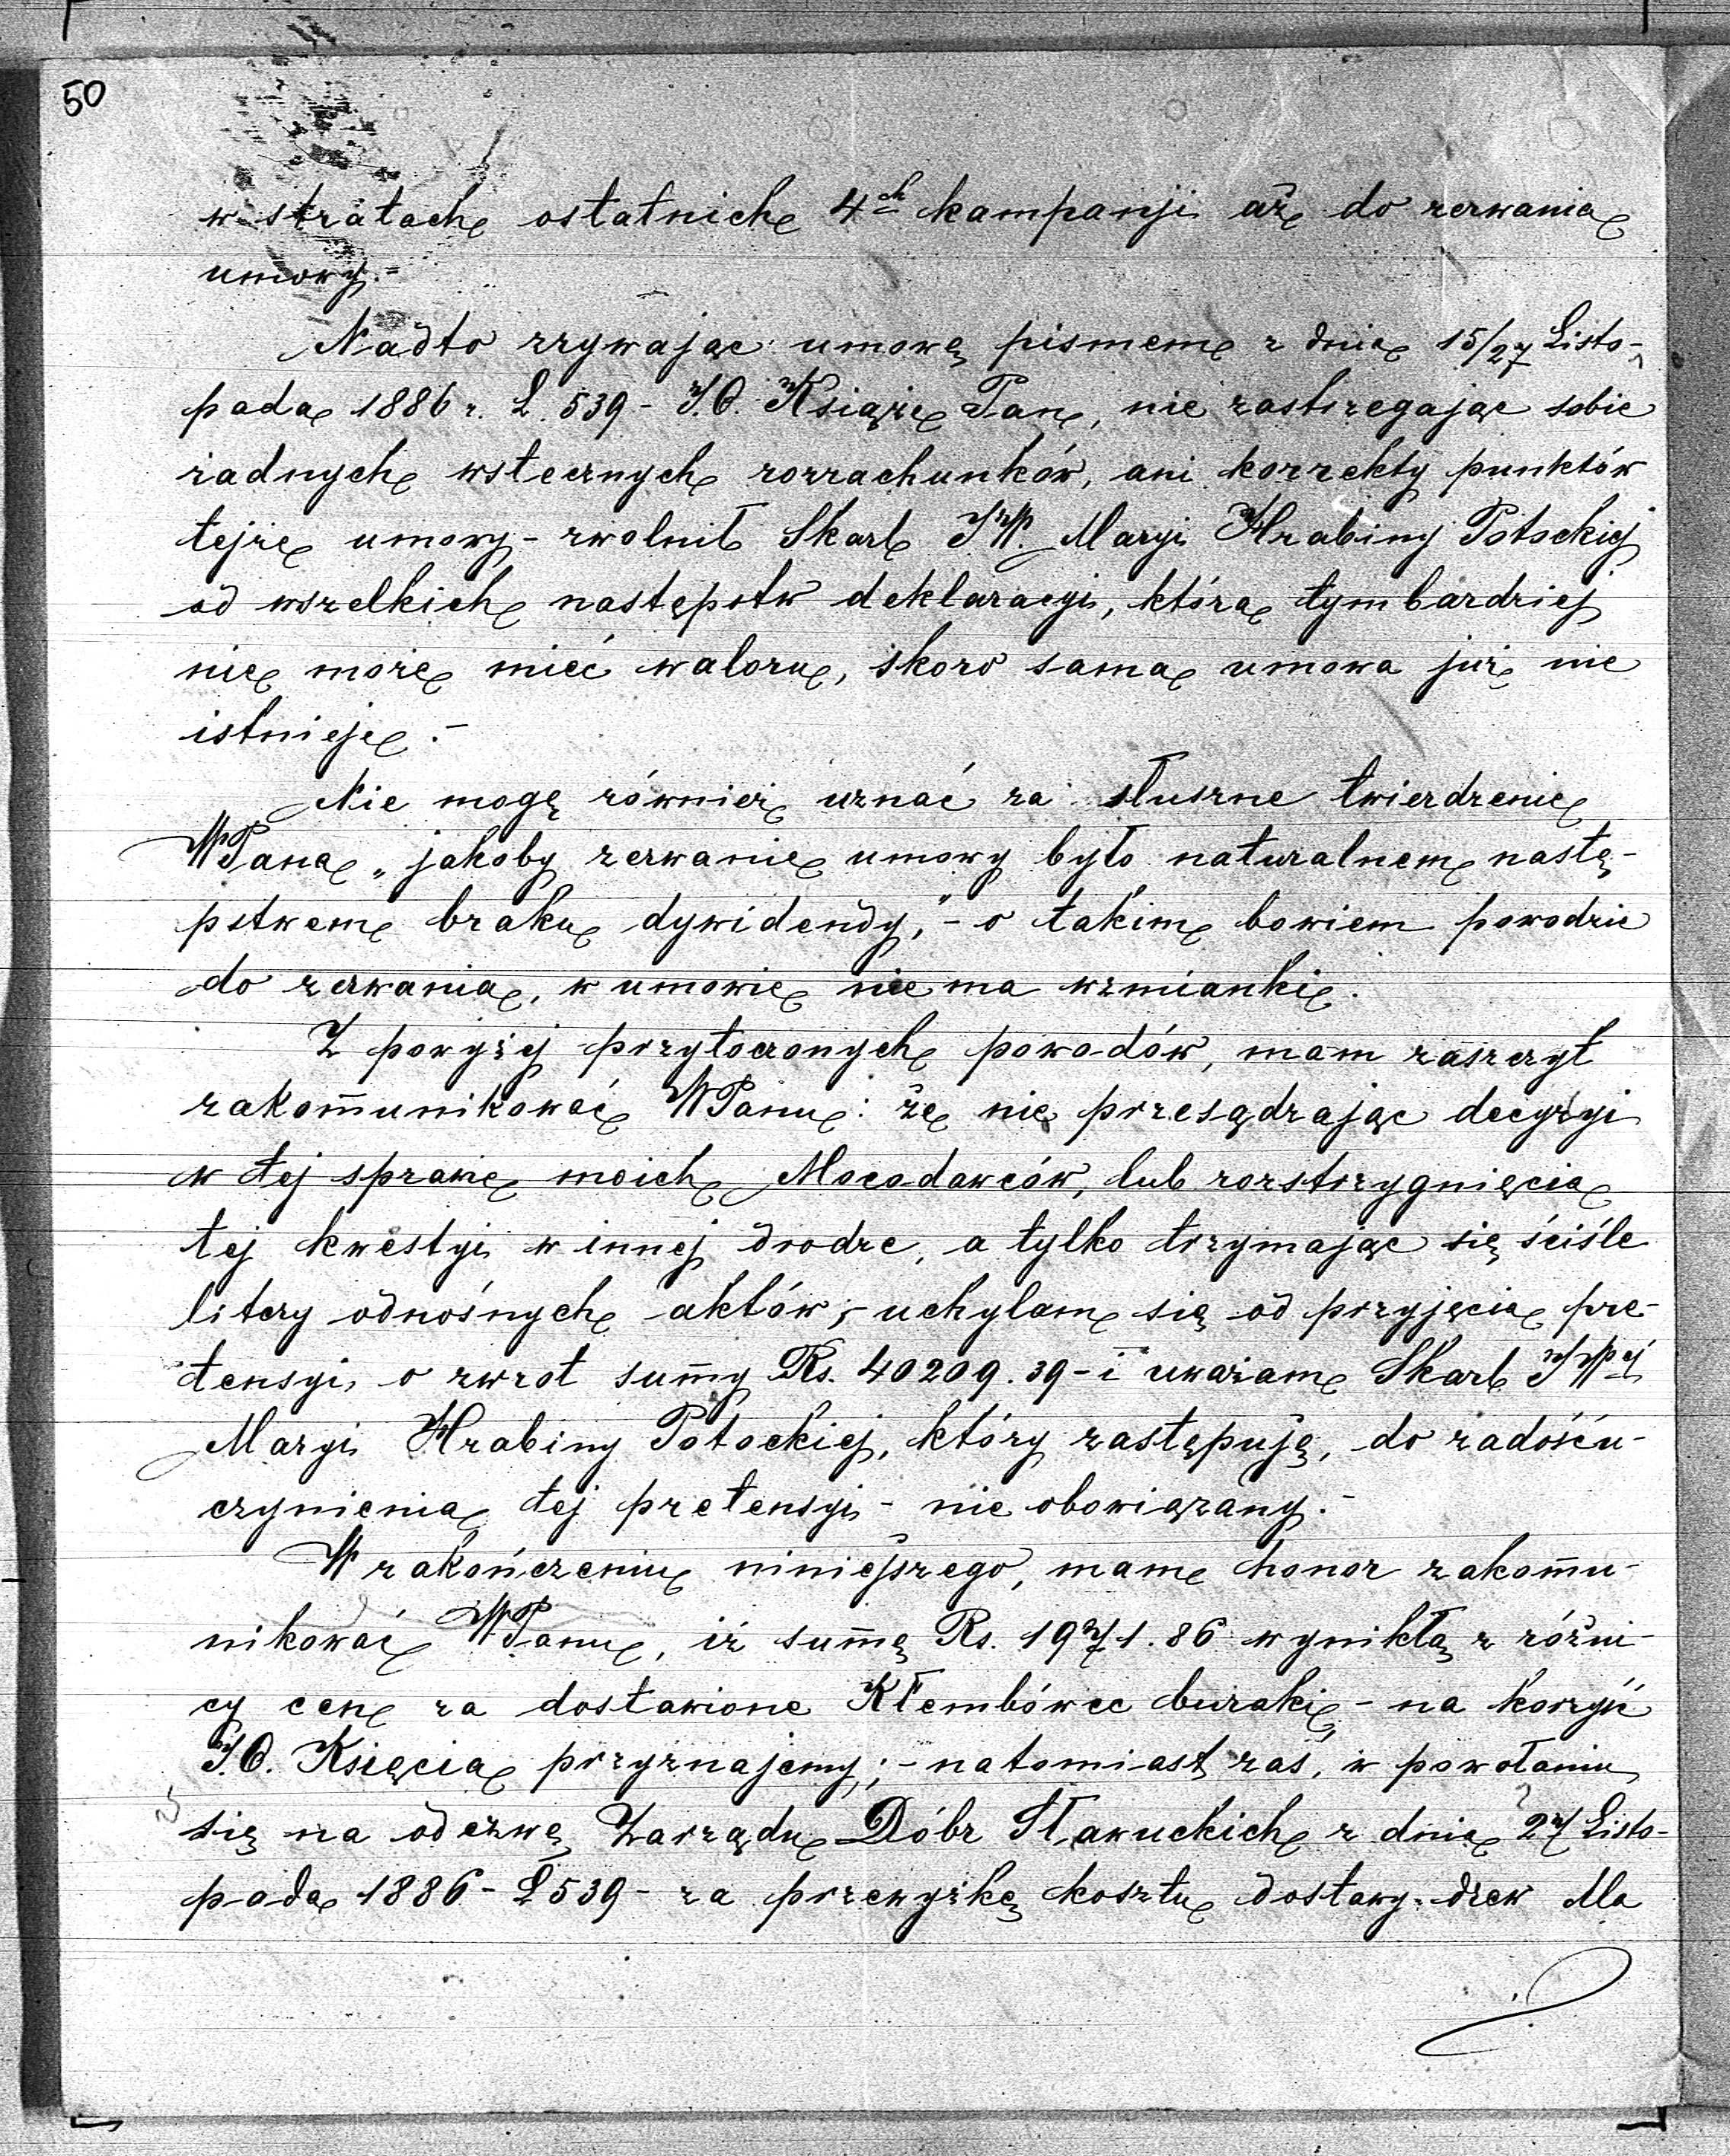 50
w stratach ostatnich 4ch kampanji aż do zerwania
umowy.=
Nadto zrywając umowę pismem z dnia 15/27 Listo-
pada 1886 r. L. 539 - J.O. Książę Pan, nie zastrzegając sobie
żadnych wstecznych rozrachunków, ani korrekty punktów
tejże umowy - zwolnił Skarb JW. Maryi Hrabiny Potockiej
od wszelkich następstw deklaracyi, która tymbardziej
nie może mieć waloru, skoro sama umowa już nie
istnieje.-
Nie mogę również uznać za słuszne twierdzenie
WPana „jakoby zerwanie umowy było naturalnem nastę-
pstwem braku dywidendy," - o takim bowiem powodzie
do zerwania, w umowie niema wzmianki.
Z powyżej przytoczonych powodów, mam zaszczyt
zakom̄unikować WPanu: że nie przesądzając decyzyi
w tej sprawie moich Mocodawców, lub rozstrzygnięcia
tej kwestyi w innej drodze, a tylko trzymając się ściśle
litery odnośnych aktów, - uchylam się od przyjęcia pre-
tensyi o zwrot sum̄y Rs. 40209.39 - i uważam Skarb JWej
Maryi Hrabiny Potockiej, który zastępuję, do zadośću-
czynienia tej pretensyi - nie obowiązany.-
W zakończeniu niniejszego, mam honor zakom̄u-
nikować WPanu, iż sum̄ę Rs. 1971.86 wynikłą z różni-
cy cen za dostawione Kłembówce buraki - na korzyść
J.O. Księcia przyznajemy; - natomiast zaś, w powołaniu
się na odezwę Zarządu Dóbr Sławuckich z dnia 27 Listo-
pada 1886 - L 539 - za przewyżkę kosztu dostawy drew Ma